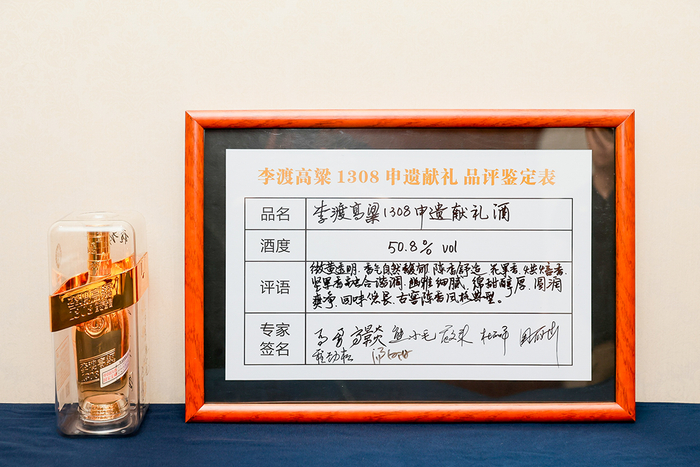 李渡高粱1308申遗献礼 品评鉴定表
品名
李渡高粱1308申遗献礼酒
酒度
50.8% vol
评语
微黄透明、香气自然馥郁、陈香舒适、花果香、烘焙香、
坚果香复合谐调、幽雅细腻、绵甜醇厚、圆润
爽净、回味悠长、古窖陈香风格典型。
专家
签名
熊小毛
李渡高粱
1308